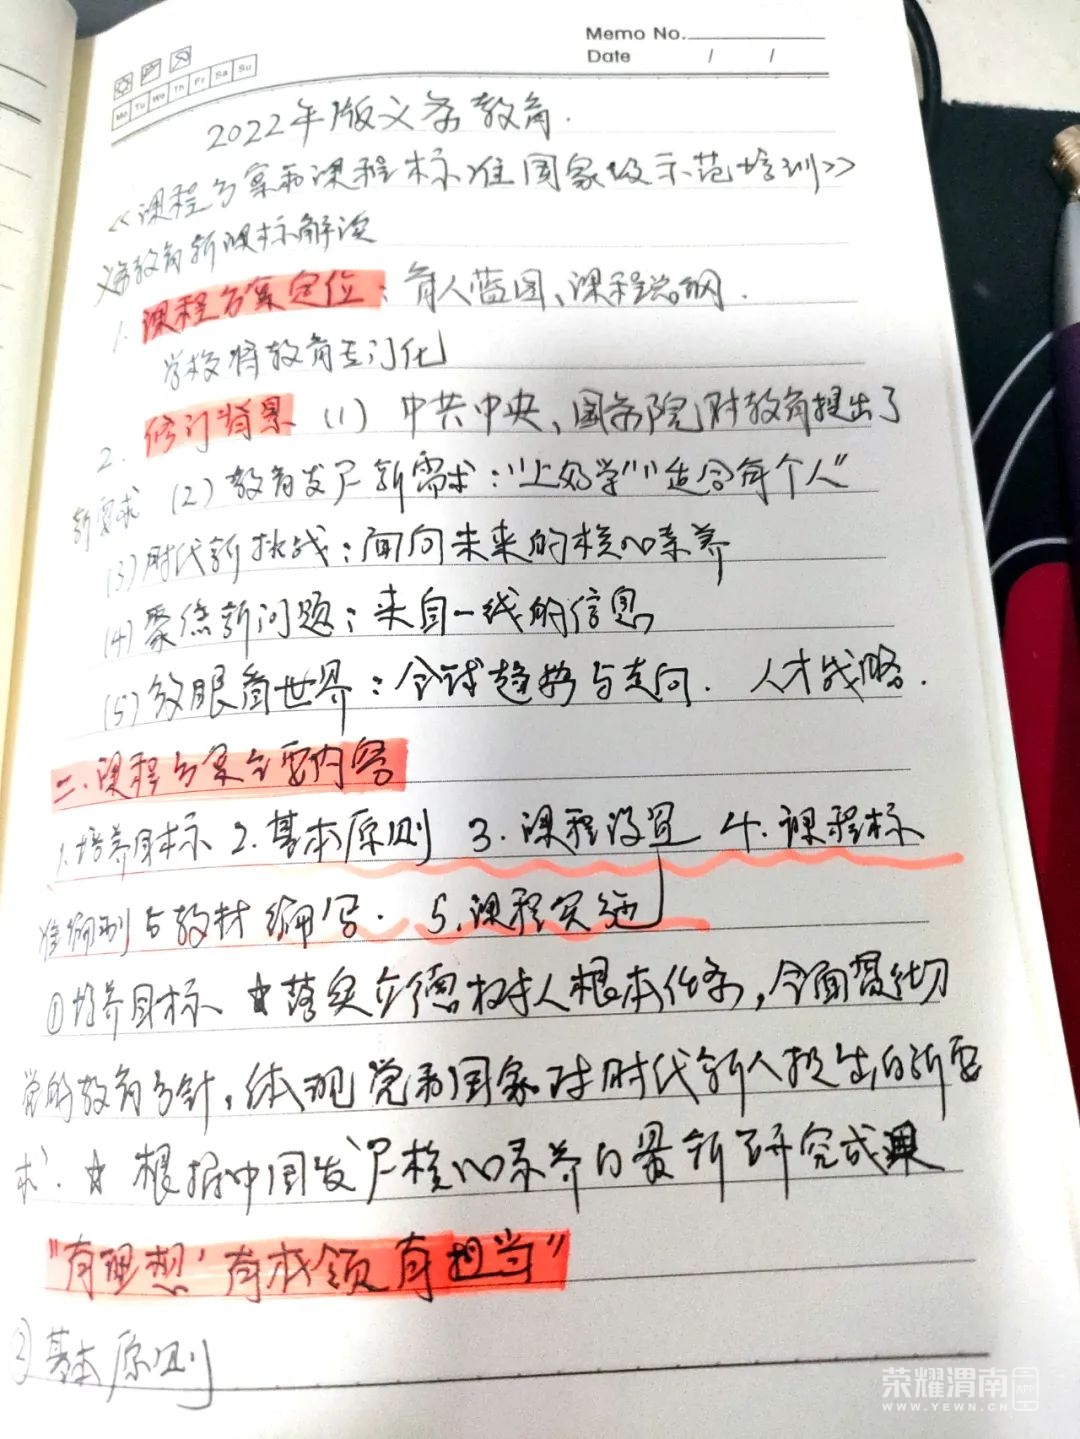 Memo No.
Date / /
Mo Tu We Th Fr Sa Su
2022年版义务教育.
《课程方案和课程标准国家级示范培训》
义务教育新课标解读
1. 课程方案定位：育人蓝图、课程总纲.
学校将教育专门化
2. 修订背景 (1) 中共中央、国务院对教育提出了
新需求 (2) 教育发展新需求："上好学""适合每个人"
(3) 时代新挑战：面向未来的核心素养
(4) 聚焦新问题：来自一线的信息
(5) 放眼看世界：全球趋势与走向. 人才战略.
二.课程方案主要内容
1.培养目标 2.基本原则 3.课程设置 4.课程标
准编制与教材编写. 5.课程实施
①培养目标 ★落实立德树人根本任务，全面贯彻
党的教育方针，体现党和国家对时代新人提出的新要
求. ★根据中国发展核心素养的最新研究成果
"有理想，有本领 有担当"
②基本原则
荣耀渭南 APP
WWW.YEWN.CN